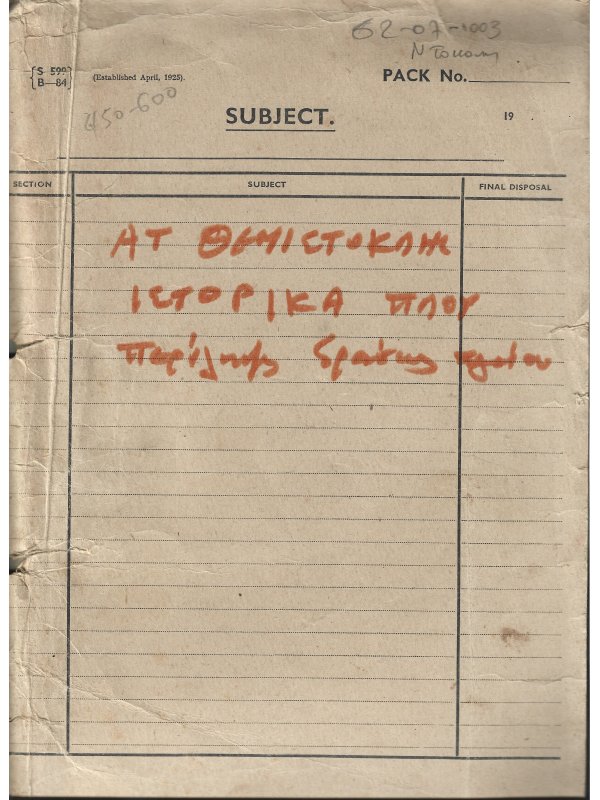 62-07-003
S 599
B—84
(Established April, 1925).
PACK No.
450-600
SUBJECT.
19 .
SECTION
SUBJECT
FINAL DISPOSAL
ΑΤ ΘΕΜΙCΤΟΚΛΗC
ΙCΤΟΡΙΚΑ ΠΛΟΥ
Περίληψις δράσεως πλοίου